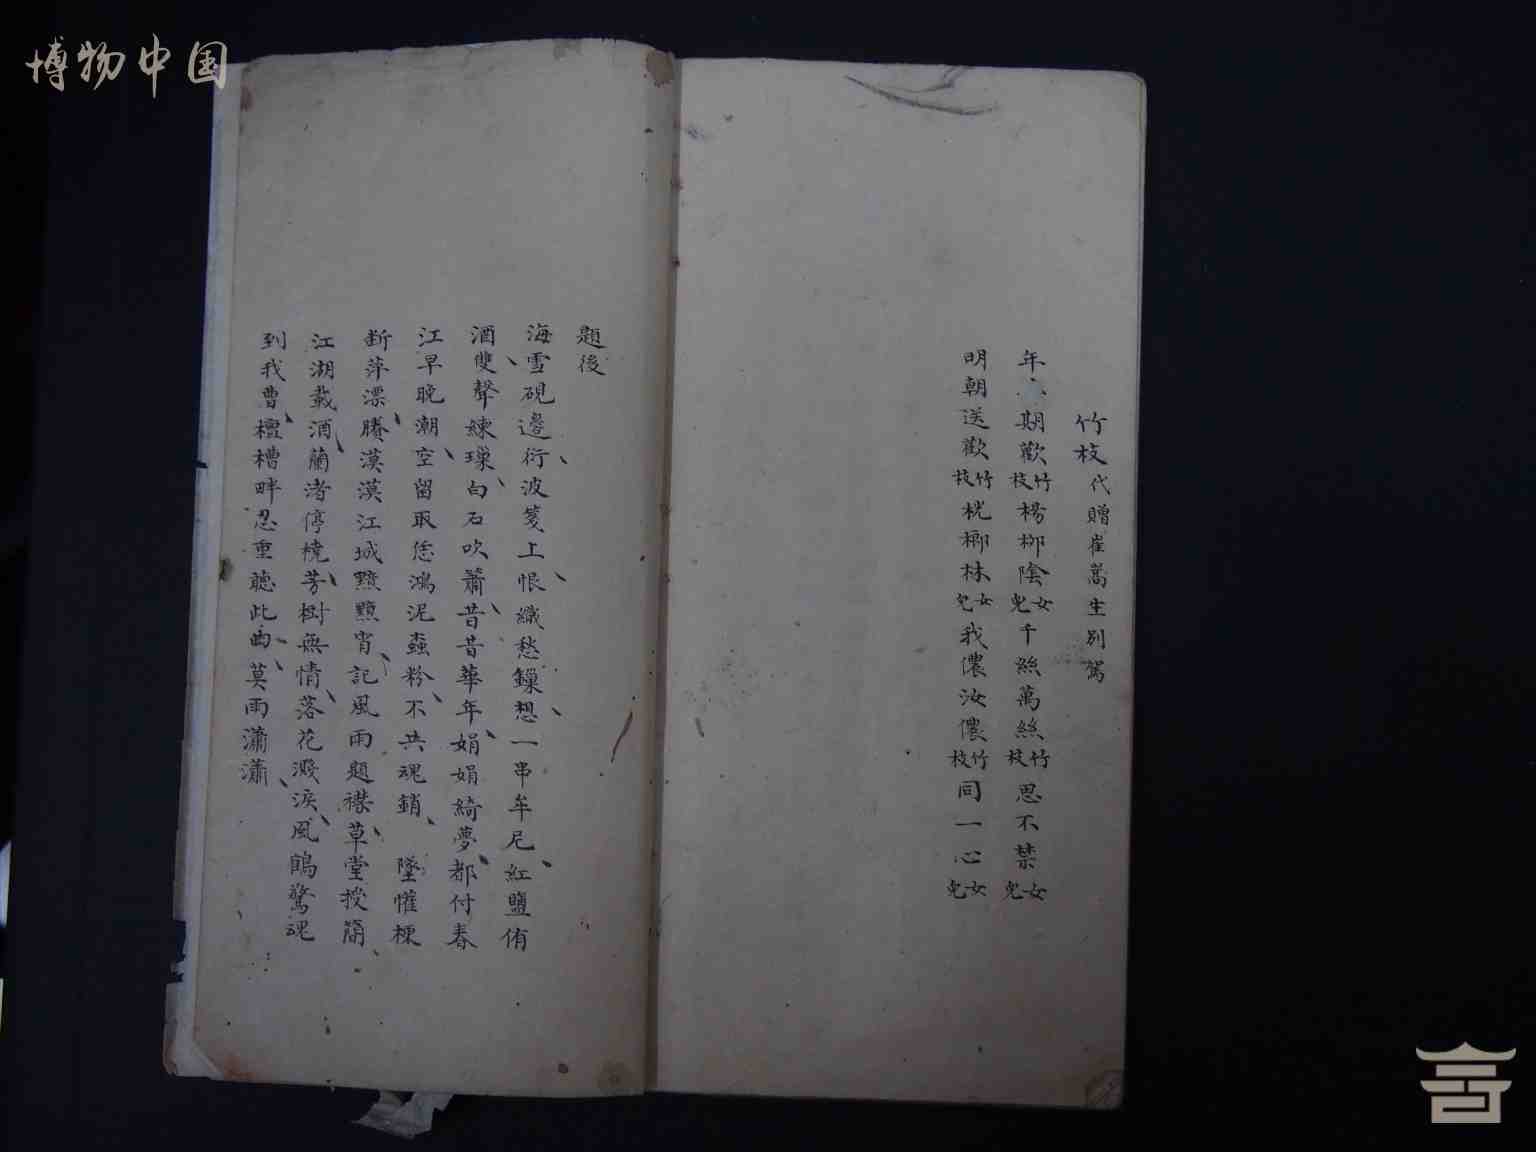 博物中国
竹枝代贈崔蒿生別駕
年 期歡竹枝楊柳陰女兒千絲萬絲竹枝思不禁女兒
明朝送歡竹枝桄榔林女兒我儂汝儂竹枝同一心女兒
題後
海雪硯邊、衍波箋上、恨織愁鏁、想一串牟尼、紅鹽侑
酒、雙聲練瑮、白石吹簫、昔昔華年、娟娟綺夢、都付春
江早晚潮、空留取恁鴻泥蟲粉、不共魂銷、 墜懽棟
斷萍漂、賸漠漠江城黯黯宵、記風雨題襟、草堂授簡、
江湖載酒、蘭渚停橈、芳樹無情、落花濺淚、風鶴驚魂
到我曹、檀槽畔忍重聽此曲、莫雨瀟瀟、